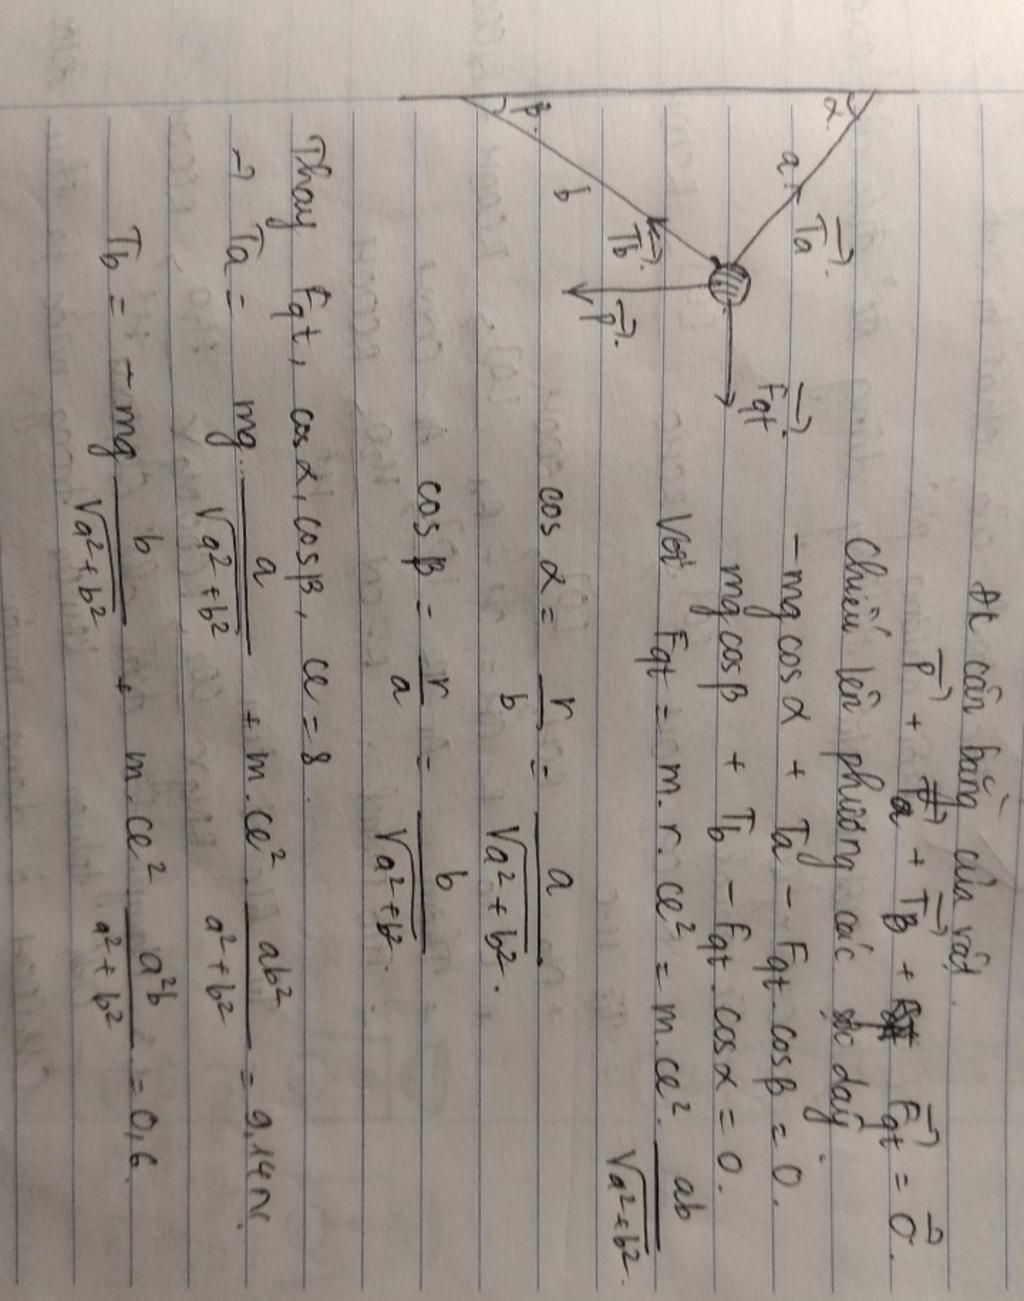 ĐK cân bằng của vật.
P⃗ + T⃗a + T⃗B + F⃗qt = 0⃗.
Chiếu lên phương các sợi dây
- mg cos α + Ta - Fqt cos β = 0.
mg cos β + Tb - Fqt. cos α = 0.
Với Fqt = m. r. ω² = m. ω². ab / √a² + b².
α
a
T⃗a.
F⃗qt.
T⃗b.
P⃗.
b
β.
cos α = r / b = a / √a² + b².
cos β = r / a = b / √a² + b².
Thay Fqt, cos α, cos β, ω = 8.
→ Ta = mg. a / √a² + b² + m. ω². ab² / a² + b² = 9,14N.
Tb = - mg b / √a² + b² + m. ω² a²b / a² + b² = 0,6.